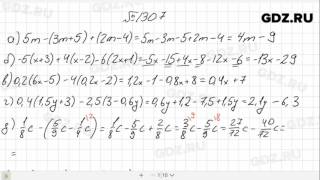 GDZ.RU
№1307
а) 5m-(3m+5)+(2m-4)=5m-3m-5+2m-4=4m-9
б) -5(x+3)+4(x-2)-6(2x+1)=-5x-15+4x-8-12x-6=-13x-29
в) 0,2(6x-5)-4(0,2x-2)=1,2x-1-0,8x+8=0,4x+7
г) 0,4(1,5y+3)-2,5(3-0,6y)=0,6y+1,2-7,5+1,5y=2,1y-6,3
д) 1/8c-(5/9c-1/4c)=1/8c-5/9c+2/8c=3/8c-5/9c=27/72c-40/72c=
=